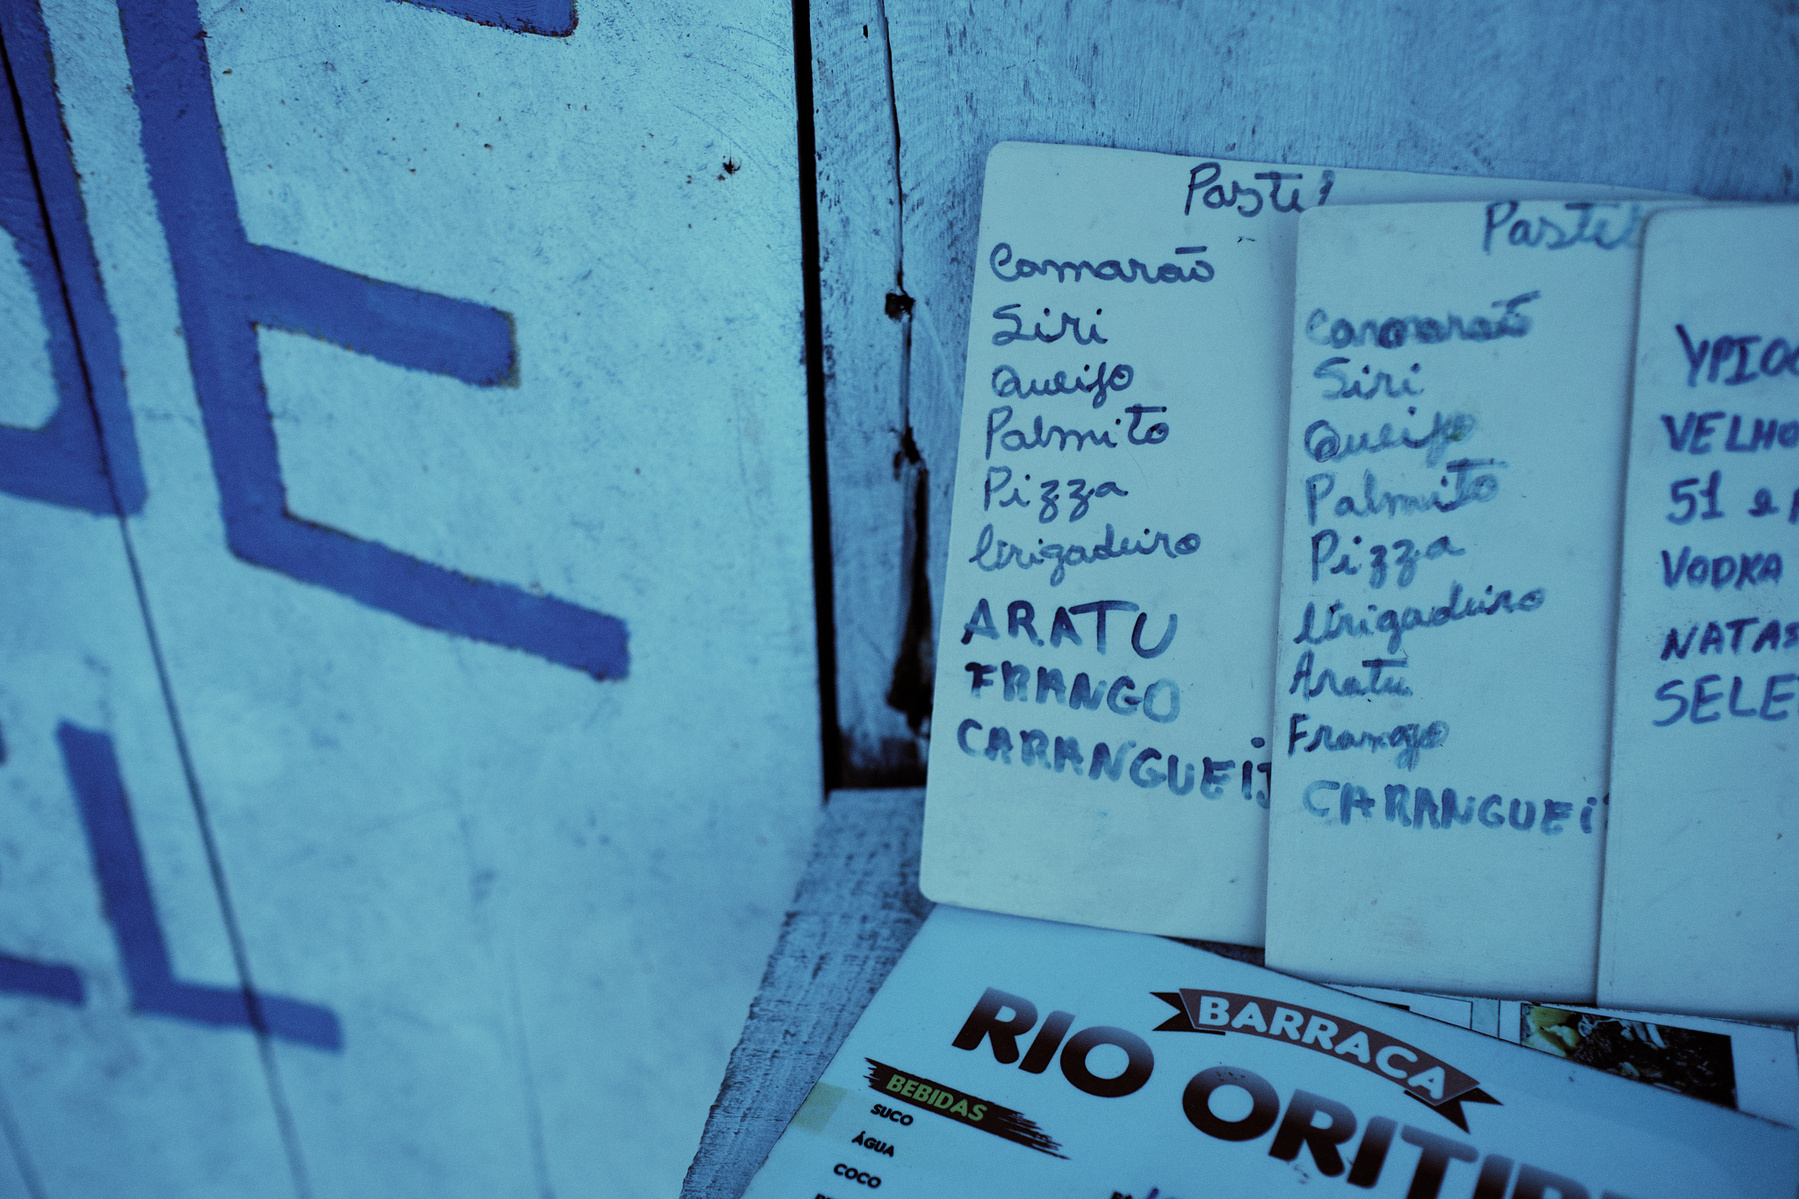 Pastel
Camarão
Siri
Queijo
Palmito
Pizza
Brigadeiro
ARATU
FRANGO
CARANGUEIJ
Pastel
Camarão
Siri
Queijo
Palmito
Pizza
Brigadeiro
Aratu
Frango
CARANGUEI
YPIOC
VELHO
51 e
VODKA
NATAS
SELET
BARRACA
RIO ORITI
BEBIDAS
SUCO
ÁGUA
COCO